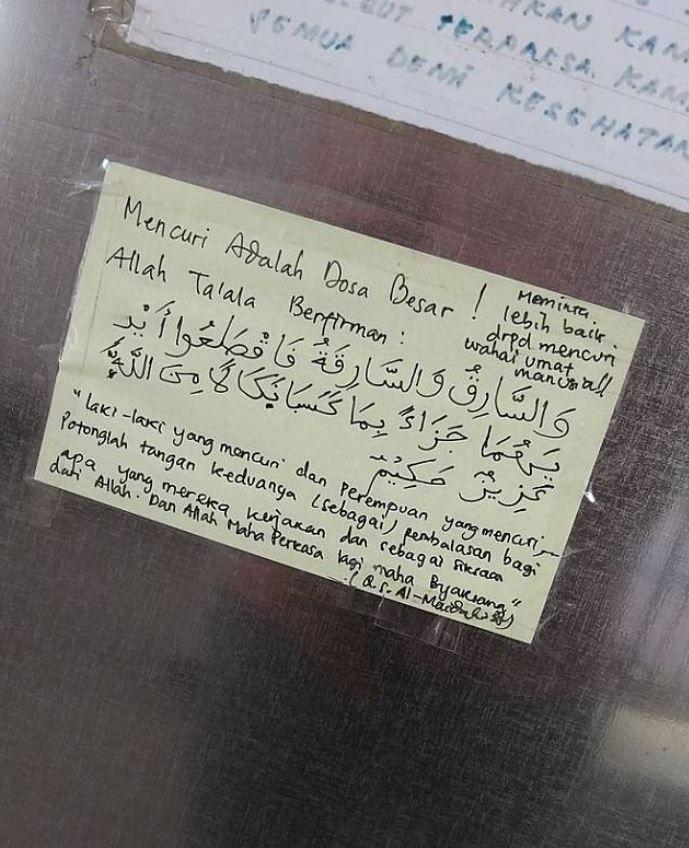 AHKAN KAM
TERPAKSA. KAM
SEMUA DEMI KESEHATAN
Mencuri Adalah Dosa Besar !
Allah Ta'ala Berfirman :
Meminta
lebih baik
drpd mencuri
wahai umat
manusia!!
وَالسَّارِقُ وَالسَّارِقَةُ فَاقْطَعُوا أَيْدِ
يَهُمَا جَزَاءً بِمَا كَسَبَا نَكَالًا مِنَ اللَّهِ
عَزِيزٌ حَكِيْمٌ
"laki-laki yang mencuri dan perempuan yang mencuri,
Potonglah tangan keduanya (sebagai) pembalasan bagi
apa yang mereka kerjakan dan sebagai siksaan
dari Allah. Dan Allah Maha Perkasa lagi maha Byaksana"
(Q.S. Al-Maidah:)